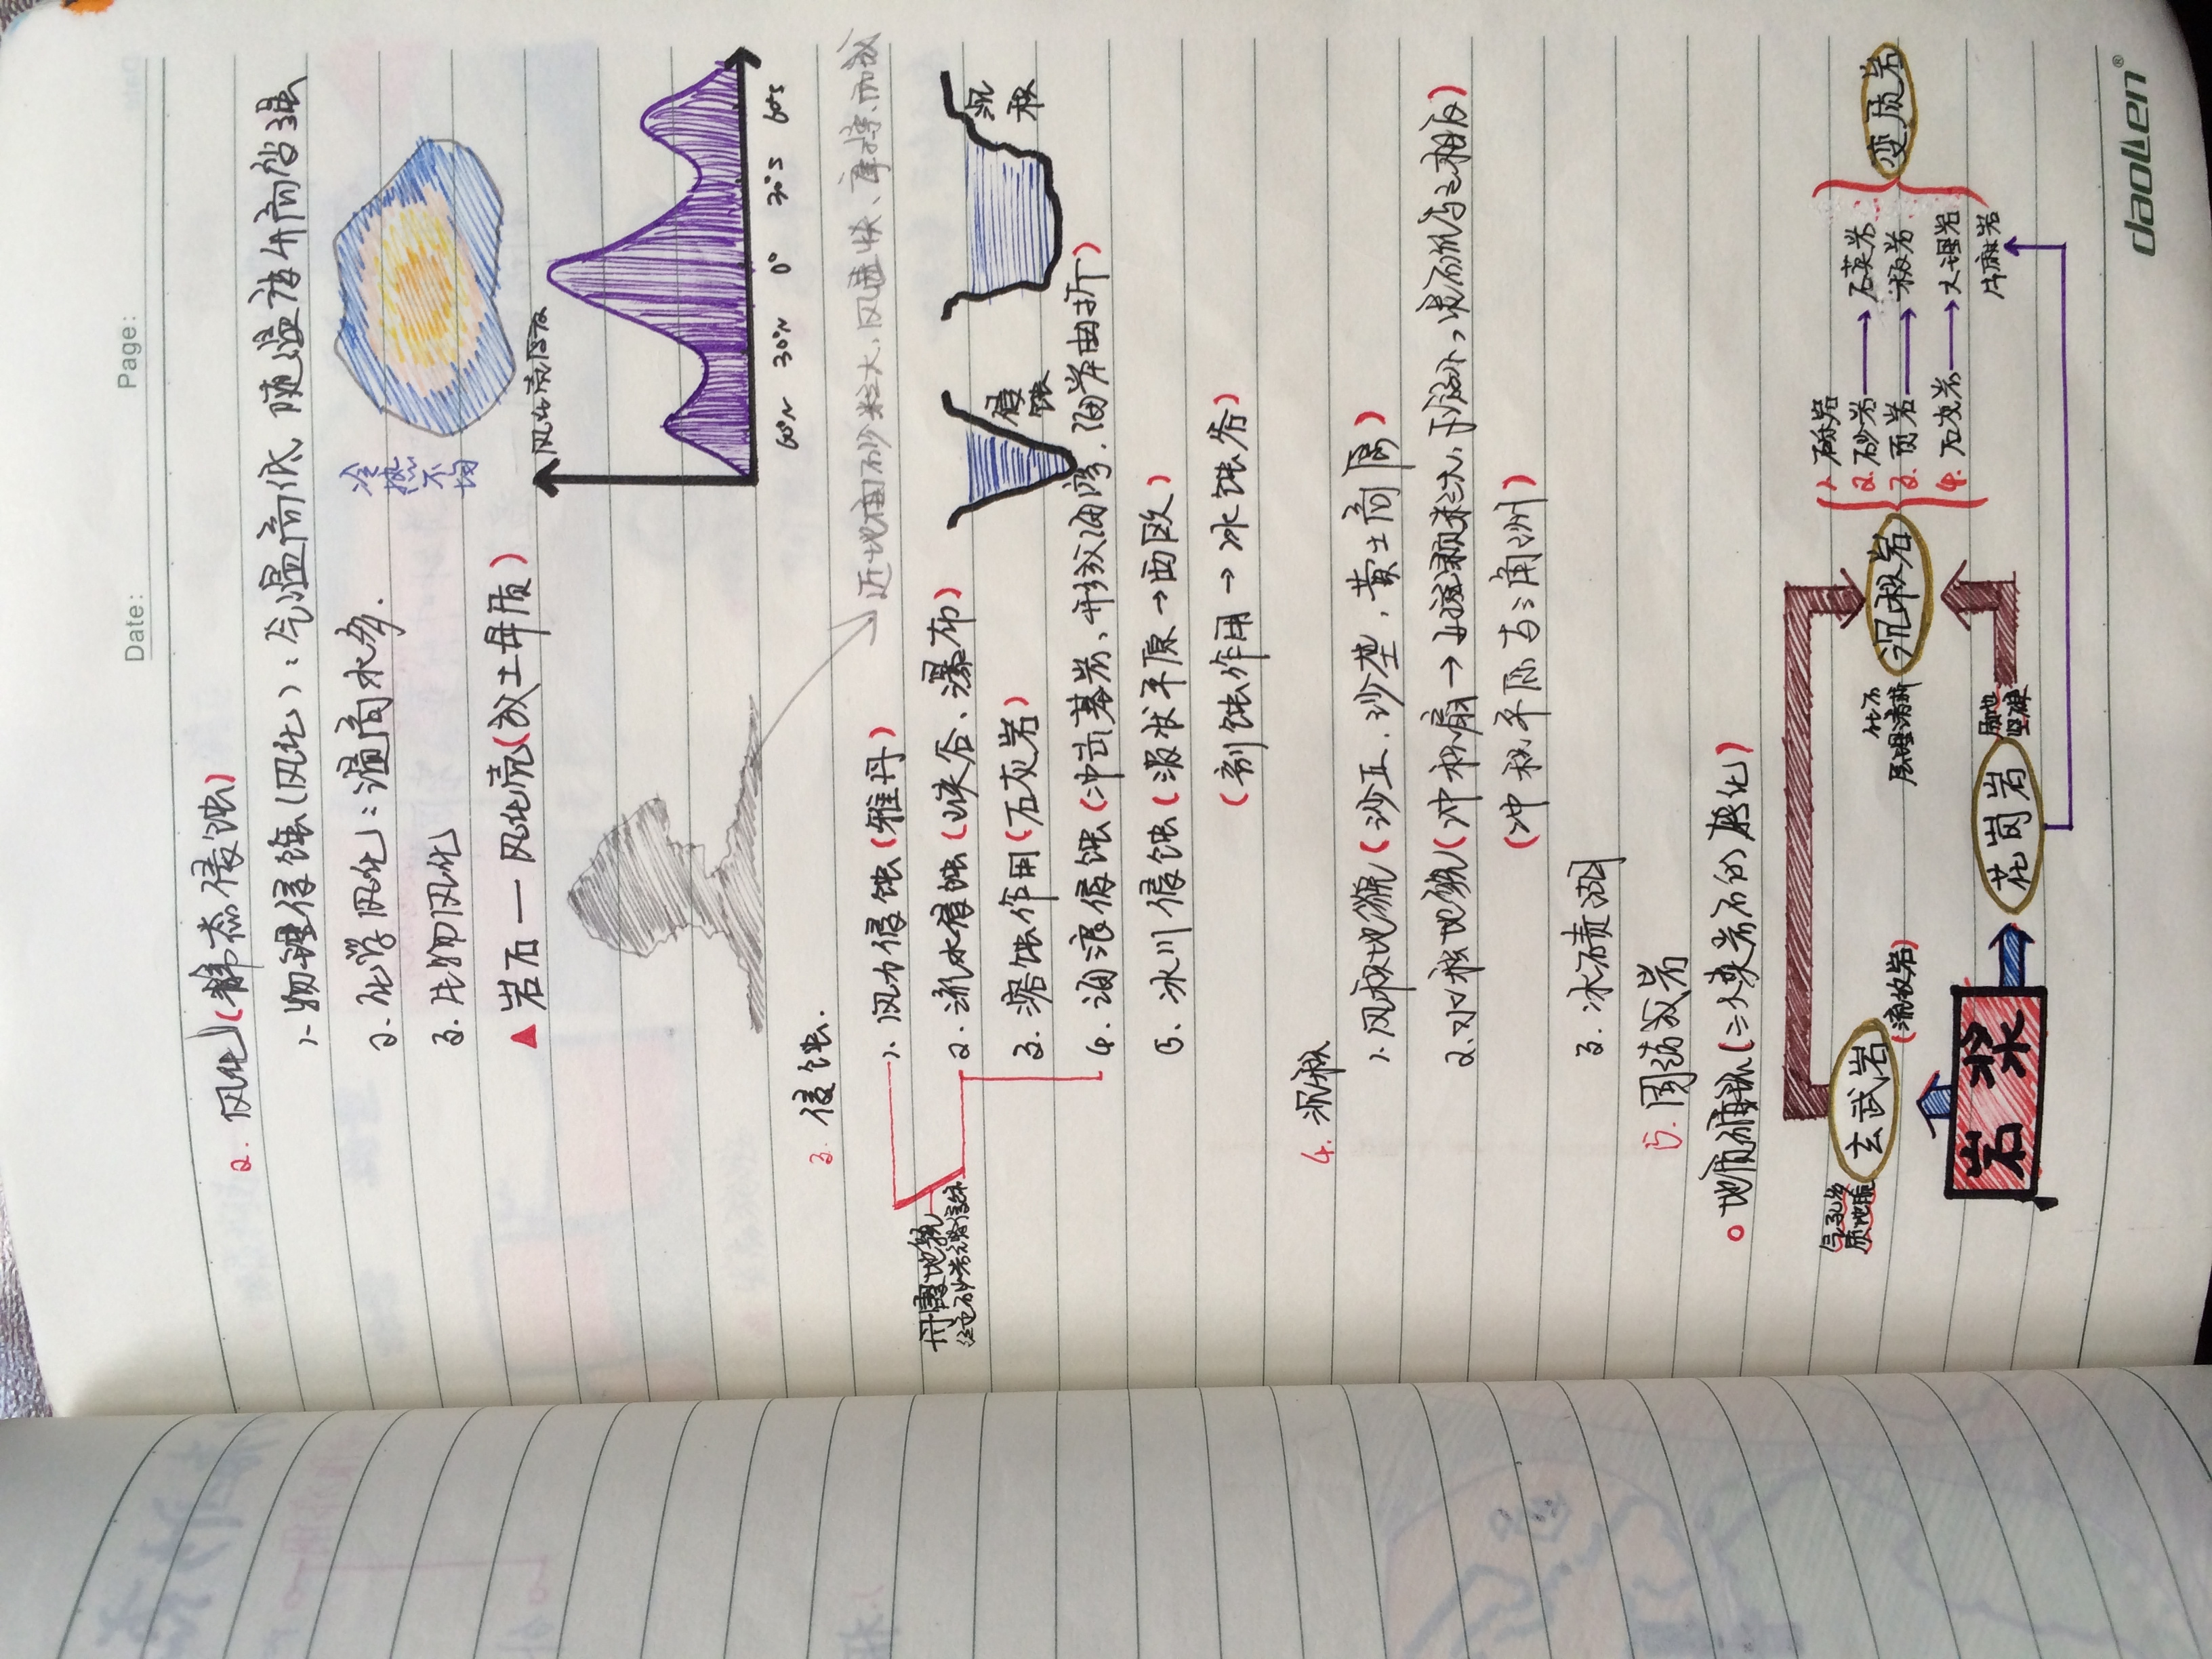 Date: Page:
2. 风化(静态侵蚀)
1. 物理侵蚀(风化):气温高低,随温度升高变强
2. 化学风化:温高水多.
3. 生物风化
冷热不均
▲岩石—风化壳(成土母质)
风化壳厚度
60°N 30°N 0° 30°S 60°S
3. 侵蚀.
近地面砂粒大,风速快、摩擦而成
1. 风力侵蚀(雅丹)
丹霞地貌
2. 流水侵蚀(峡谷、瀑布)
侵蚀
沉积
3. 溶蚀作用(石灰岩)
4. 海浪侵蚀(冲击基岩、形成海湾,海岸曲折)
5. 冰川侵蚀(波状平原→西欧)
(刨蚀作用→冰蚀谷)
4. 沉积
1. 风积地貌(沙丘,沙垄,黄土高原)
2. 水积地貌(冲积扇→颗粒大,与之相反)
(冲积平原与三角洲)
3. 冰碛湖
5. 固结成岩
○地质循环(三大类岩石的转化)
气孔多
质地脆
玄武岩
(流纹岩)
岩浆
花岗岩
质地
坚硬
化石
层理清晰
沉积岩
1. 砾岩
2. 砂岩→石英岩
3. 页岩→板岩
4. 石灰岩→大理岩
片麻岩
变质岩
daolen®